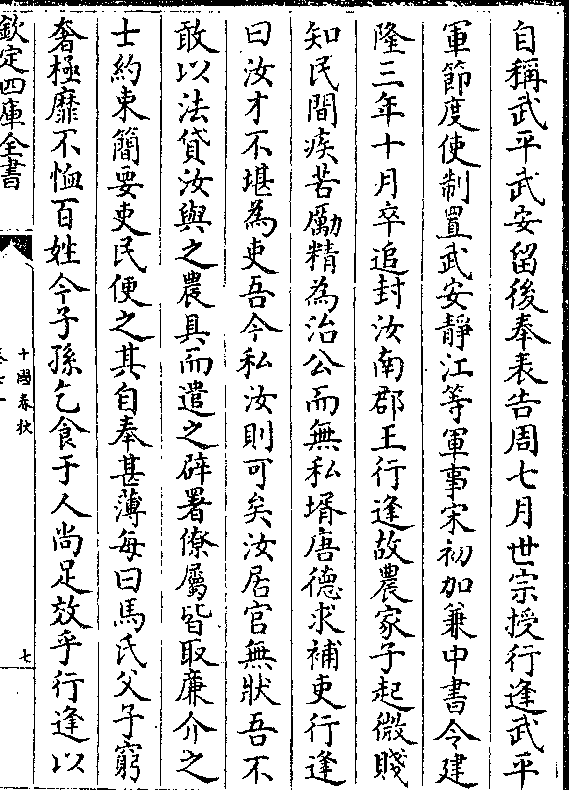 自稱武平武安留後奉表告周七月世宗授行逢武平
軍節度使制置武安靜江等軍事宋初加兼中書令建
隆三年十月卒追封汝南郡王行逢故農家子起微賤
知民間疾苦勵精為治公而無私壻唐德求補吏行逢
曰汝才不堪為吏吾今私汝則可矣汝居官無狀吾不
敢以法貸汝與之農具而遣之辟署僚屬皆取廉介之
士約束簡要吏民便之其自奉甚薄每曰馬氏父子窮
奢極靡不恤百姓今子孫乞食于人尚足效乎行逢以
欽定四庫全書
十國春秋
七